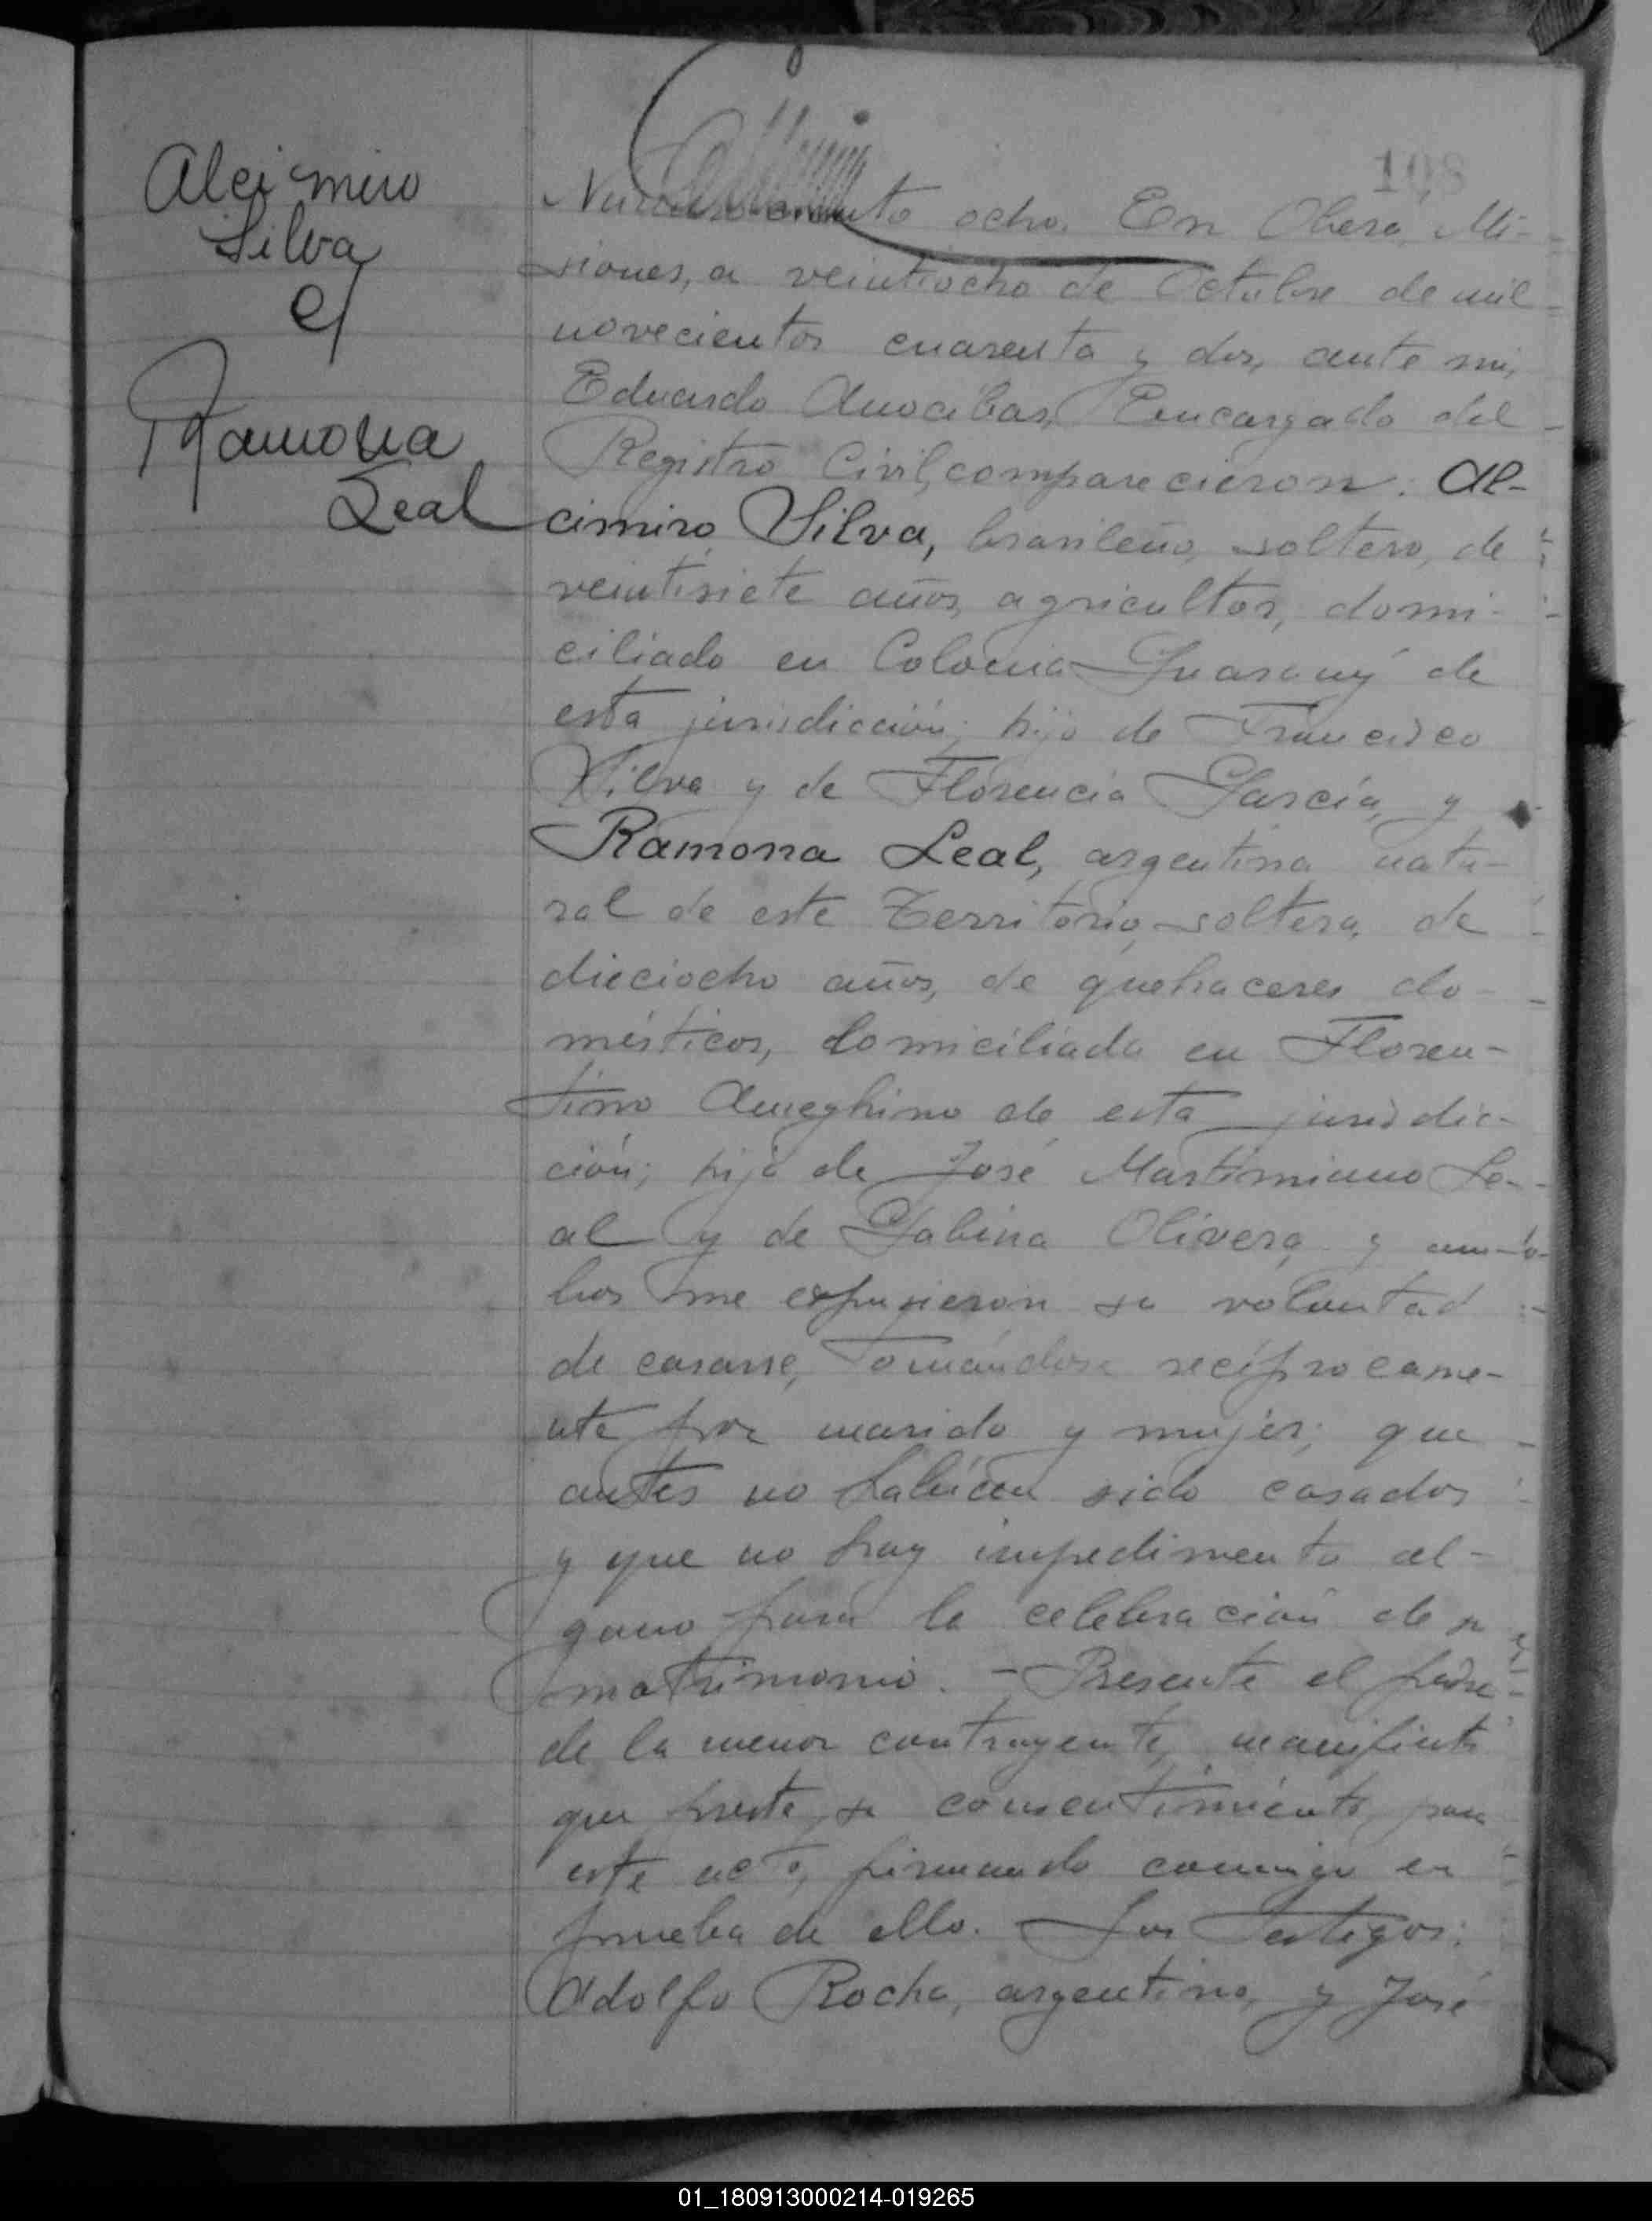 108
Alcimiro
Silva
c/
Ramona
Leal
Numero ciento ocho. En Oberá, Mi-
siones, a veintiocho de Octubre de mil
novecientos cuarenta y dos, ante mi,
Eduardo Encargado del
Registro Civil, comparecieron: Al-
cimiro Silva, brasileño, soltero, de
veintisiete años, agricultor, domi-
ciliado en Colonia Guarany de
esta jurisdicción; hijo de Francisco
Silva y de Florencia García, y
Ramona Leal, argentina natu-
ral de este Territorio, soltera, de
dieciocho años, de quehaceres do-
mésticos, domiciliada en Floren-
tino Ameghino de esta jurisdic-
ción; hija de José Martimiano Le-
al y de Sabina Olivera, y am-
bos me expusieron su voluntad
de casarse, tomándose recíprocame-
nte por marido y mujer; que
antes no habían sido casados
y que no hay impedimento al-
guno para la celebración de su
matrimonio. - Presente el padre
de la menor contrayente, manifiesta
que presta su consentimiento para
este acto, firmando conmigo en
prueba de ello. Los Testigos:
Adolfo Rocha, argentino, y José
01_180913000214-019265